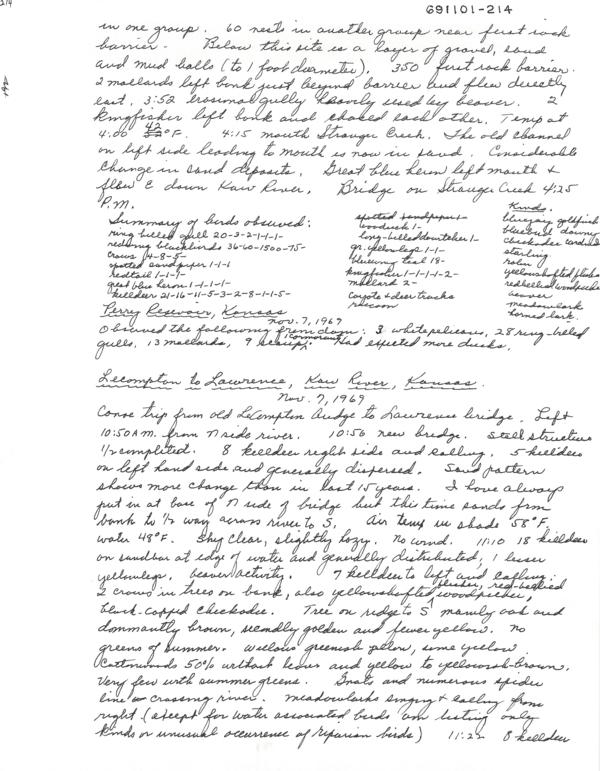 214
691101-214
in one group. 60 nests in another group near first rock
barrier. Below this site is a layer of gravel, sand
and mud balls (to 1 foot diameter). 350 first rock barrier.
2 mallards left bank just beyond barrier and flew directly
east. 3:52 erosional gully heavily used by beaver. 2
kingfisher left bank and chased each other. Temp at
4:00 42°F. 4:15 mouth Stranger Creek. The old channel
on left side leading to mouth is now in sand. Considerable
change in sand deposits. Great blue heron left mouth &
flew E down Kaw River. Bridge on Stranger Creek 4:25
P.M.
Summary of birds observed:
ring billed gull 20-3-2-1-1-1-
redwing blackbirds 36-60-1500-75-
crows 14-8-5-
spotted sandpiper 1-1-1
redtail 1-1-1-
great blue heron 1-1-1-1-
killdeer 21-16-11-5-3-2-8-1-1-5-
spotted sandpiper 1-
woodcock 1-
long-billed dowitcher 1-
gr. yellowlegs 1-1-
bluewing teal 18-
kingfisher 1-1-1-1-2-
mallard 2-
coyote & deer tracks
raccoon
Kinds.
bluejay goldfinch
bluebird downy
chickadee cardinal
starling
robin
yellowshafted flicker
redbellied woodpecker
beaver
meadowlark
horned lark.
Perry Reservoir, Kansas
Nov. 7, 1969
Observed the following from dam: 3 white pelicans, 28 ring-billed
gulls, 13 mallards, 9 scaup. 1 cormorant Had expected more ducks.
Lecompton to Lawrence, Kaw River, Kansas.
Nov. 7, 1969
Canoe trip from old LeCompton bridge to Lawrence bridge. Left
10:50 A.M. from N side river. 10:56 new bridge. Steel structure
1/2 completed. 8 killdeer right side and calling. 5 killdeer
on left hand side and generally dispersed. Sand pattern
shows more change than in last 15 years. I have always
put in at base of N side of bridge but this time sands from
bank to 1/2 way across river to S. Air temp in shade 58°F,
water 48°F. Sky clear, slightly hazy. No wind. 11:10 18 killdeer
on sandbar at edge of water and generally distributed; 1 lesser
yellowlegs, beaver activity. 7 killdeer to left and calling.
2 crows in trees on bank, also yellowshafted flicker, red-bellied woodpecker,
black-capped chickadee. Tree on ridge to S mainly oak and
dominantly brown, secondly golden and fewer yellow. No
greens of summer. Willows greenish yellow, some yellow.
Cottonwoods 50% without leaves and yellow to yellowish-brown.
Very few with summer greens. Gnats and numerous spider
line crossing river. Meadowlarks singing & calling from
right (except for water associated birds am listing only
kinds or unusual occurrence of riparian birds) 11:22 8 killdeer